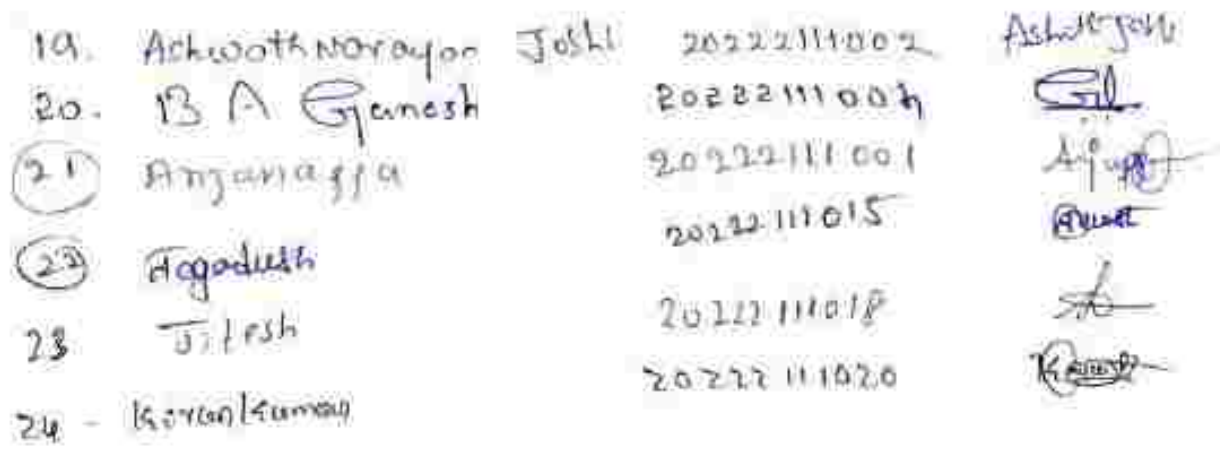 19. Ashwath Narayan Joshi 20222111002
20. B A Ganesh 20222111004
21 Anjanappa 20222111001
22 Jagadish 20222111015
23 Jitesh 20222111018
24 - Kiran Kumar 20222111020